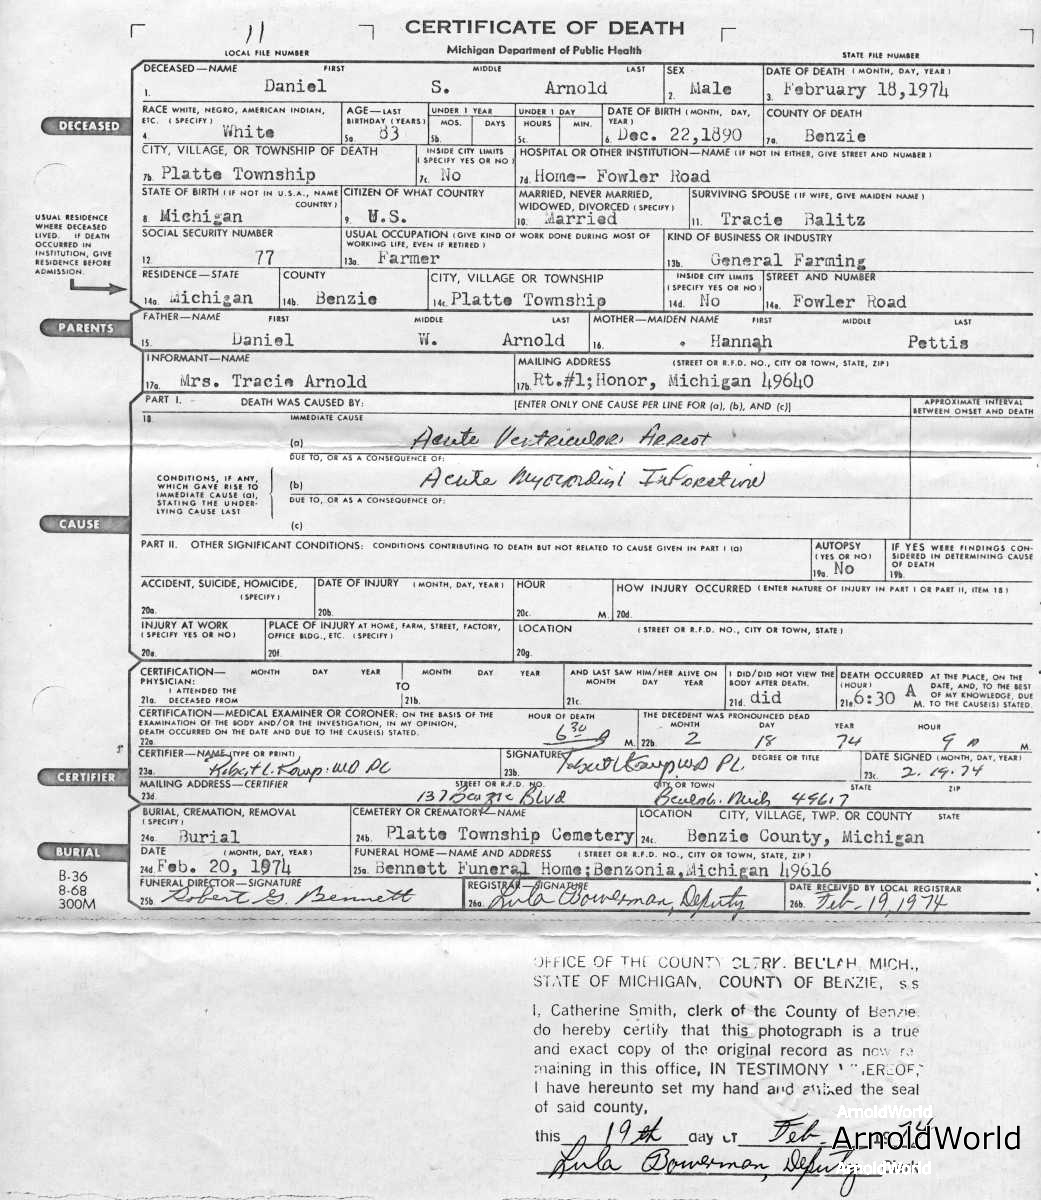 11
CERTIFICATE OF DEATH
LOCAL FILE NUMBER
Michigan Department of Public Health
STATE FILE NUMBER
DECEASED
DECEASED—NAME FIRST MIDDLE LAST
1. Daniel S. Arnold
SEX
2. Male
DATE OF DEATH (MONTH, DAY, YEAR)
3. February 18,1974
RACE WHITE, NEGRO, AMERICAN INDIAN, ETC. (SPECIFY)
4. White
AGE—LAST BIRTHDAY (YEARS)
5a. 83
UNDER 1 YEAR
MOS. DAYS
5b.
UNDER 1 DAY
HOURS MIN.
5c.
DATE OF BIRTH (MONTH, DAY, YEAR)
6. Dec. 22,1890
COUNTY OF DEATH
7a. Benzie
CITY, VILLAGE, OR TOWNSHIP OF DEATH
7b. Platte Township
INSIDE CITY LIMITS (SPECIFY YES OR NO)
7c. No
HOSPITAL OR OTHER INSTITUTION—NAME (IF NOT IN EITHER, GIVE STREET AND NUMBER)
7d. Home- Fowler Road
STATE OF BIRTH (IF NOT IN U.S.A., NAME COUNTRY)
8. Michigan
CITIZEN OF WHAT COUNTRY
9. U.S.
MARRIED, NEVER MARRIED, WIDOWED, DIVORCED (SPECIFY)
10. Married
SURVIVING SPOUSE (IF WIFE, GIVE MAIDEN NAME)
11. Tracie Balitz
USUAL RESIDENCE
WHERE DECEASED
LIVED. IF DEATH
OCCURRED IN
INSTITUTION, GIVE
RESIDENCE BEFORE
ADMISSION.
SOCIAL SECURITY NUMBER
12. 77
USUAL OCCUPATION (GIVE KIND OF WORK DONE DURING MOST OF WORKING LIFE, EVEN IF RETIRED)
13a. Farmer
KIND OF BUSINESS OR INDUSTRY
13b. General Farming
RESIDENCE—STATE
14a. Michigan
COUNTY
14b. Benzie
CITY, VILLAGE OR TOWNSHIP
14c. Platte Township
INSIDE CITY LIMITS (SPECIFY YES OR NO)
14d. No
STREET AND NUMBER
14e. Fowler Road
PARENTS
FATHER—NAME FIRST MIDDLE LAST
15. Daniel W. Arnold
MOTHER—MAIDEN NAME FIRST MIDDLE LAST
16. Hannah Pettis
INFORMANT—NAME
17a. Mrs. Tracie Arnold
MAILING ADDRESS (STREET OR R.F.D. NO., CITY OR TOWN, STATE, ZIP)
17b. Rt.#1;Honor, Michigan 49640
CAUSE
PART I. DEATH WAS CAUSED BY: [ENTER ONLY ONE CAUSE PER LINE FOR (a), (b), AND (c)]
APPROXIMATE INTERVAL BETWEEN ONSET AND DEATH
18. IMMEDIATE CAUSE
(a) Acute Ventricular Arrest
DUE TO, OR AS A CONSEQUENCE OF:
(b) Acute Myocardial Infarction
DUE TO, OR AS A CONSEQUENCE OF:
(c)
CONDITIONS, IF ANY,
WHICH GAVE RISE TO
IMMEDIATE CAUSE (a),
STATING THE UNDER-
LYING CAUSE LAST
PART II. OTHER SIGNIFICANT CONDITIONS: CONDITIONS CONTRIBUTING TO DEATH BUT NOT RELATED TO CAUSE GIVEN IN PART I (a)
AUTOPSY (YES OR NO)
19a. No
IF YES WERE FINDINGS CONSIDERED IN DETERMINING CAUSE OF DEATH
19b.
ACCIDENT, SUICIDE, HOMICIDE, (SPECIFY)
20a.
DATE OF INJURY (MONTH, DAY, YEAR)
20b.
HOUR
20c. M.
HOW INJURY OCCURRED (ENTER NATURE OF INJURY IN PART I OR PART II, ITEM 18)
20d.
INJURY AT WORK (SPECIFY YES OR NO)
20e.
PLACE OF INJURY AT HOME, FARM, STREET, FACTORY, OFFICE BLDG., ETC. (SPECIFY)
20f.
LOCATION (STREET OR R.F.D. NO., CITY OR TOWN, STATE)
20g.
CERTIFIER
CERTIFICATION—PHYSICIAN: MONTH DAY YEAR
I ATTENDED THE
21a. DECEASED FROM
TO
MONTH DAY YEAR
21b.
AND LAST SAW HIM/HER ALIVE ON MONTH DAY YEAR
21c.
I DID/DID NOT VIEW THE BODY AFTER DEATH.
21d. did
DEATH OCCURRED (HOUR)
21e. 6:30 A M.
AT THE PLACE, ON THE DATE, AND, TO THE BEST OF MY KNOWLEDGE, DUE TO THE CAUSE(S) STATED.
CERTIFICATION—MEDICAL EXAMINER OR CORONER: ON THE BASIS OF THE
EXAMINATION OF THE BODY AND/OR THE INVESTIGATION, IN MY OPINION,
DEATH OCCURRED ON THE DATE AND DUE TO THE CAUSE(S) STATED.
22a.
HOUR OF DEATH
6 30 M.
THE DECEDENT WAS PRONOUNCED DEAD
MONTH DAY YEAR HOUR
22b. 2 18 74 9 M.
CERTIFIER—NAME (TYPE OR PRINT)
23a. Robert L.
SIGNATURE DEGREE OR TITLE
23b.
DATE SIGNED (MONTH, DAY, YEAR)
23c. 2.19.74
MAILING ADDRESS—CERTIFIER STREET OR R.F.D. NO. CITY OR TOWN STATE ZIP
23d. 137 Benzie Blvd Beulah. Mich 49617
BURIAL
BURIAL, CREMATION, REMOVAL (SPECIFY)
24a. Burial
CEMETERY OR CREMATORY—NAME
24b. Platte Township Cemetery
LOCATION CITY, VILLAGE, TWP. OR COUNTY STATE
24c. Benzie County, Michigan
DATE (MONTH, DAY, YEAR)
24d. Feb. 20, 1974
FUNERAL HOME—NAME AND ADDRESS (STREET OR R.F.D. NO., CITY OR TOWN, STATE, ZIP)
25a. Bennett Funeral Home;Benzonia,Michigan 49616
B-36
8-68
300M
FUNERAL DIRECTOR—SIGNATURE
25b. Robert G. Bennett
REGISTRAR—SIGNATURE
26a. Lula Bowerman, Deputy
DATE RECEIVED BY LOCAL REGISTRAR
26b. Feb. 19, 1974
OFFICE OF THE COUNTY CLERK. BEULAH, MICH.,
STATE OF MICHIGAN, COUNTY OF BENZIE, s s
I, Catherine Smith, clerk of the County of Benzie
do hereby certify that this photograph is a true
and exact copy of the original record as now re
maining in this office, IN TESTIMONY WHEREOF,
I have hereunto set my hand and affixed the seal
of said county,
this 19th day of Feb. 1974
Lula Bowerman, Deputy Clerk
ArnoldWorld
ArnoldWorld
ArnoldWorld